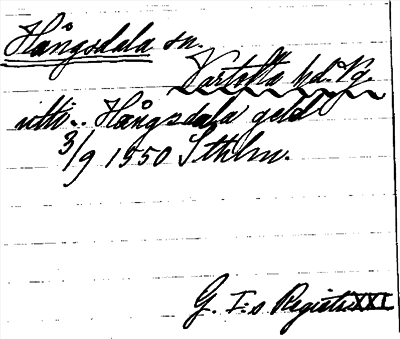 Hångsdala sn.
Vartofta hd. Vg.
utti.. Hångsdala geld
3/9 1550 Sthlm.
G. I:s Registr. XXI